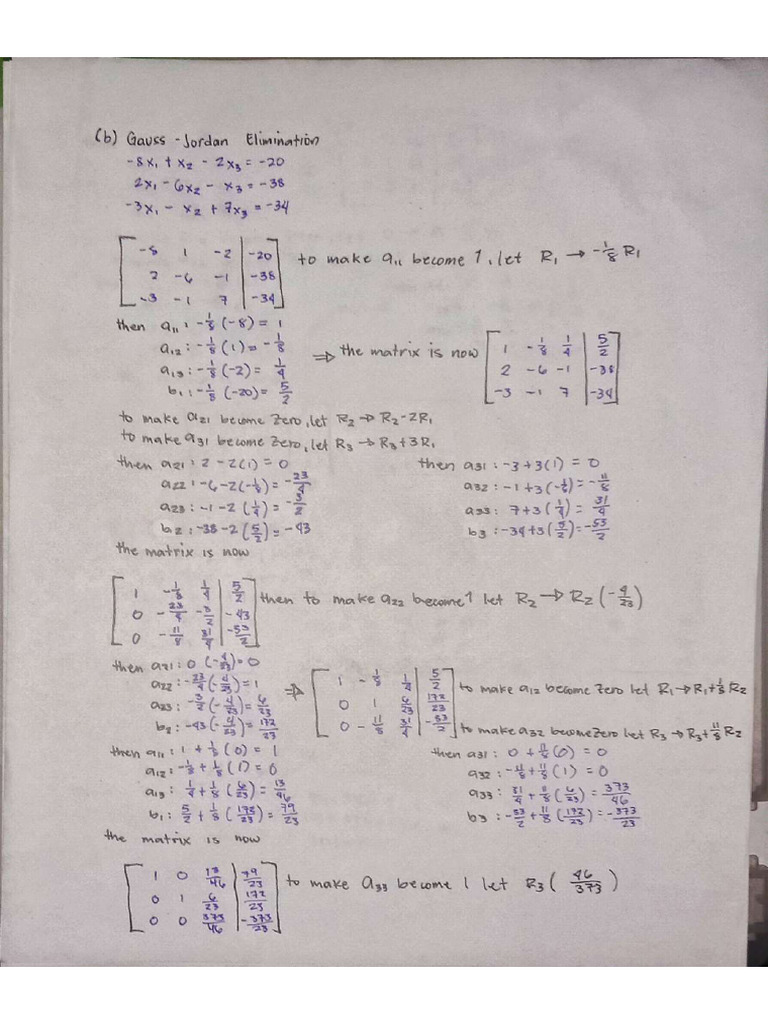 (b) Gauss - Jordan Elimination
-8x₁ + x₂ - 2x₃ = -20
2x₁ - 6x₂ - x₃ = -38
-3x₁ - x₂ + 7x₃ = -34
-8 1 -2 | -20 to make a₁₁ become 1, let R₁ → -1/8 R₁
2 -6 -1 | -38
-3 -1 7 | -34
then a₁₁ : -1/8 (-8) = 1
a₁₂ : -1/8 (1) = -1/8
a₁₃ : -1/8 (-2) = 1/4
b₁ : -1/8 (-20) = 5/2
⇒ the matrix is now
1 -1/8 1/4 | 5/2
2 -6 -1 | -38
-3 -1 7 | -34
to make a₂₁ become zero, let R₂ → R₂-2R₁
to make a₃₁ become zero, let R₃ → R₃+3R₁
then a₂₁ : 2 - 2(1) = 0
a₂₂ : -6-2(-1/8) = -23/4
a₂₃ : -1-2(1/4) = -3/2
b₂ : -38-2(5/2) = -43
then a₃₁ : -3+3(1) = 0
a₃₂ : -1+3(-1/8) = -11/8
a₃₃ : 7+3(1/4) = 31/4
b₃ : -34+3(5/2) = -53/2
the matrix is now
1 -1/8 1/4 | 5/2
0 -23/4 -3/2 | -43
0 -11/8 31/4 | -53/2
then to make a₂₂ become 1 let R₂ → R₂(-4/23)
then a₂₁ : 0(-4/23) = 0
a₂₂ : -23/4(-4/23) = 1
a₂₃ : -3/2(-4/23) = 6/23
b₂ : -43(-4/23) = 172/23
⇒
1 -1/8 1/4 | 5/2
0 1 6/23 | 172/23
0 -11/8 31/4 | -53/2
to make a₁₂ become zero let R₁ → R₁+1/8 R₂
to make a₃₂ become zero let R₃ → R₃+11/8 R₂
then a₁₁ : 1 + 1/8 (0) = 1
a₁₂ : -1/8 + 1/8 (1) = 0
a₁₃ : 1/4 + 1/8 (6/23) = 13/46
b₁ : 5/2 + 1/8 (172/23) = 79/23
then a₃₁ : 0 + 11/8 (0) = 0
a₃₂ : -11/8 + 11/8 (1) = 0
a₃₃ : 31/4 + 11/8 (6/23) = 373/46
b₃ : -53/2 + 11/8 (172/23) = -373/23
the matrix is now
1 0 13/46 | 79/23
0 1 6/23 | 172/23
0 0 373/46 | -373/23
to make a₃₃ become 1 let R₃ (46/373)